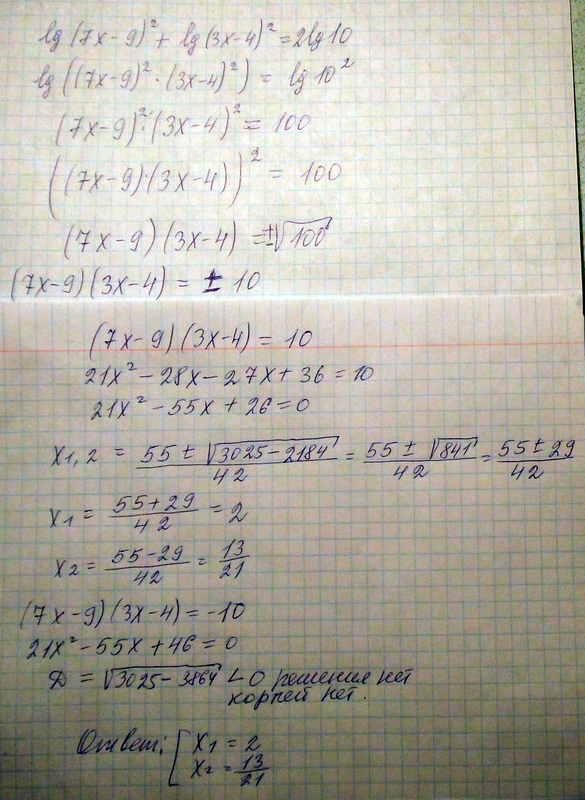 lg (7x-9)² + lg (3x-4)² = 2lg 10
lg ((7x-9)² · (3x-4)²) = lg 10²
(7x-9)² · (3x-4)² = 100
((7x-9)·(3x-4))² = 100
(7x-9)(3x-4) = ±√100
(7x-9)(3x-4) = ± 10
(7x-9)(3x-4) = 10
21x² - 28x - 27x + 36 = 10
21x² - 55x + 26 = 0
x1,2 = (55 ± √(3025-2184))/42 = (55 ± √841)/42 = (55 ± 29)/42
x1 = (55+29)/42 = 2
x2 = (55-29)/42 = 13/21
(7x-9)(3x-4) = -10
21x² - 55x + 46 = 0
D = √(3025-3864) < 0 решения нет
корней нет.
Ответ: [ x1 = 2
x2 = 13/21